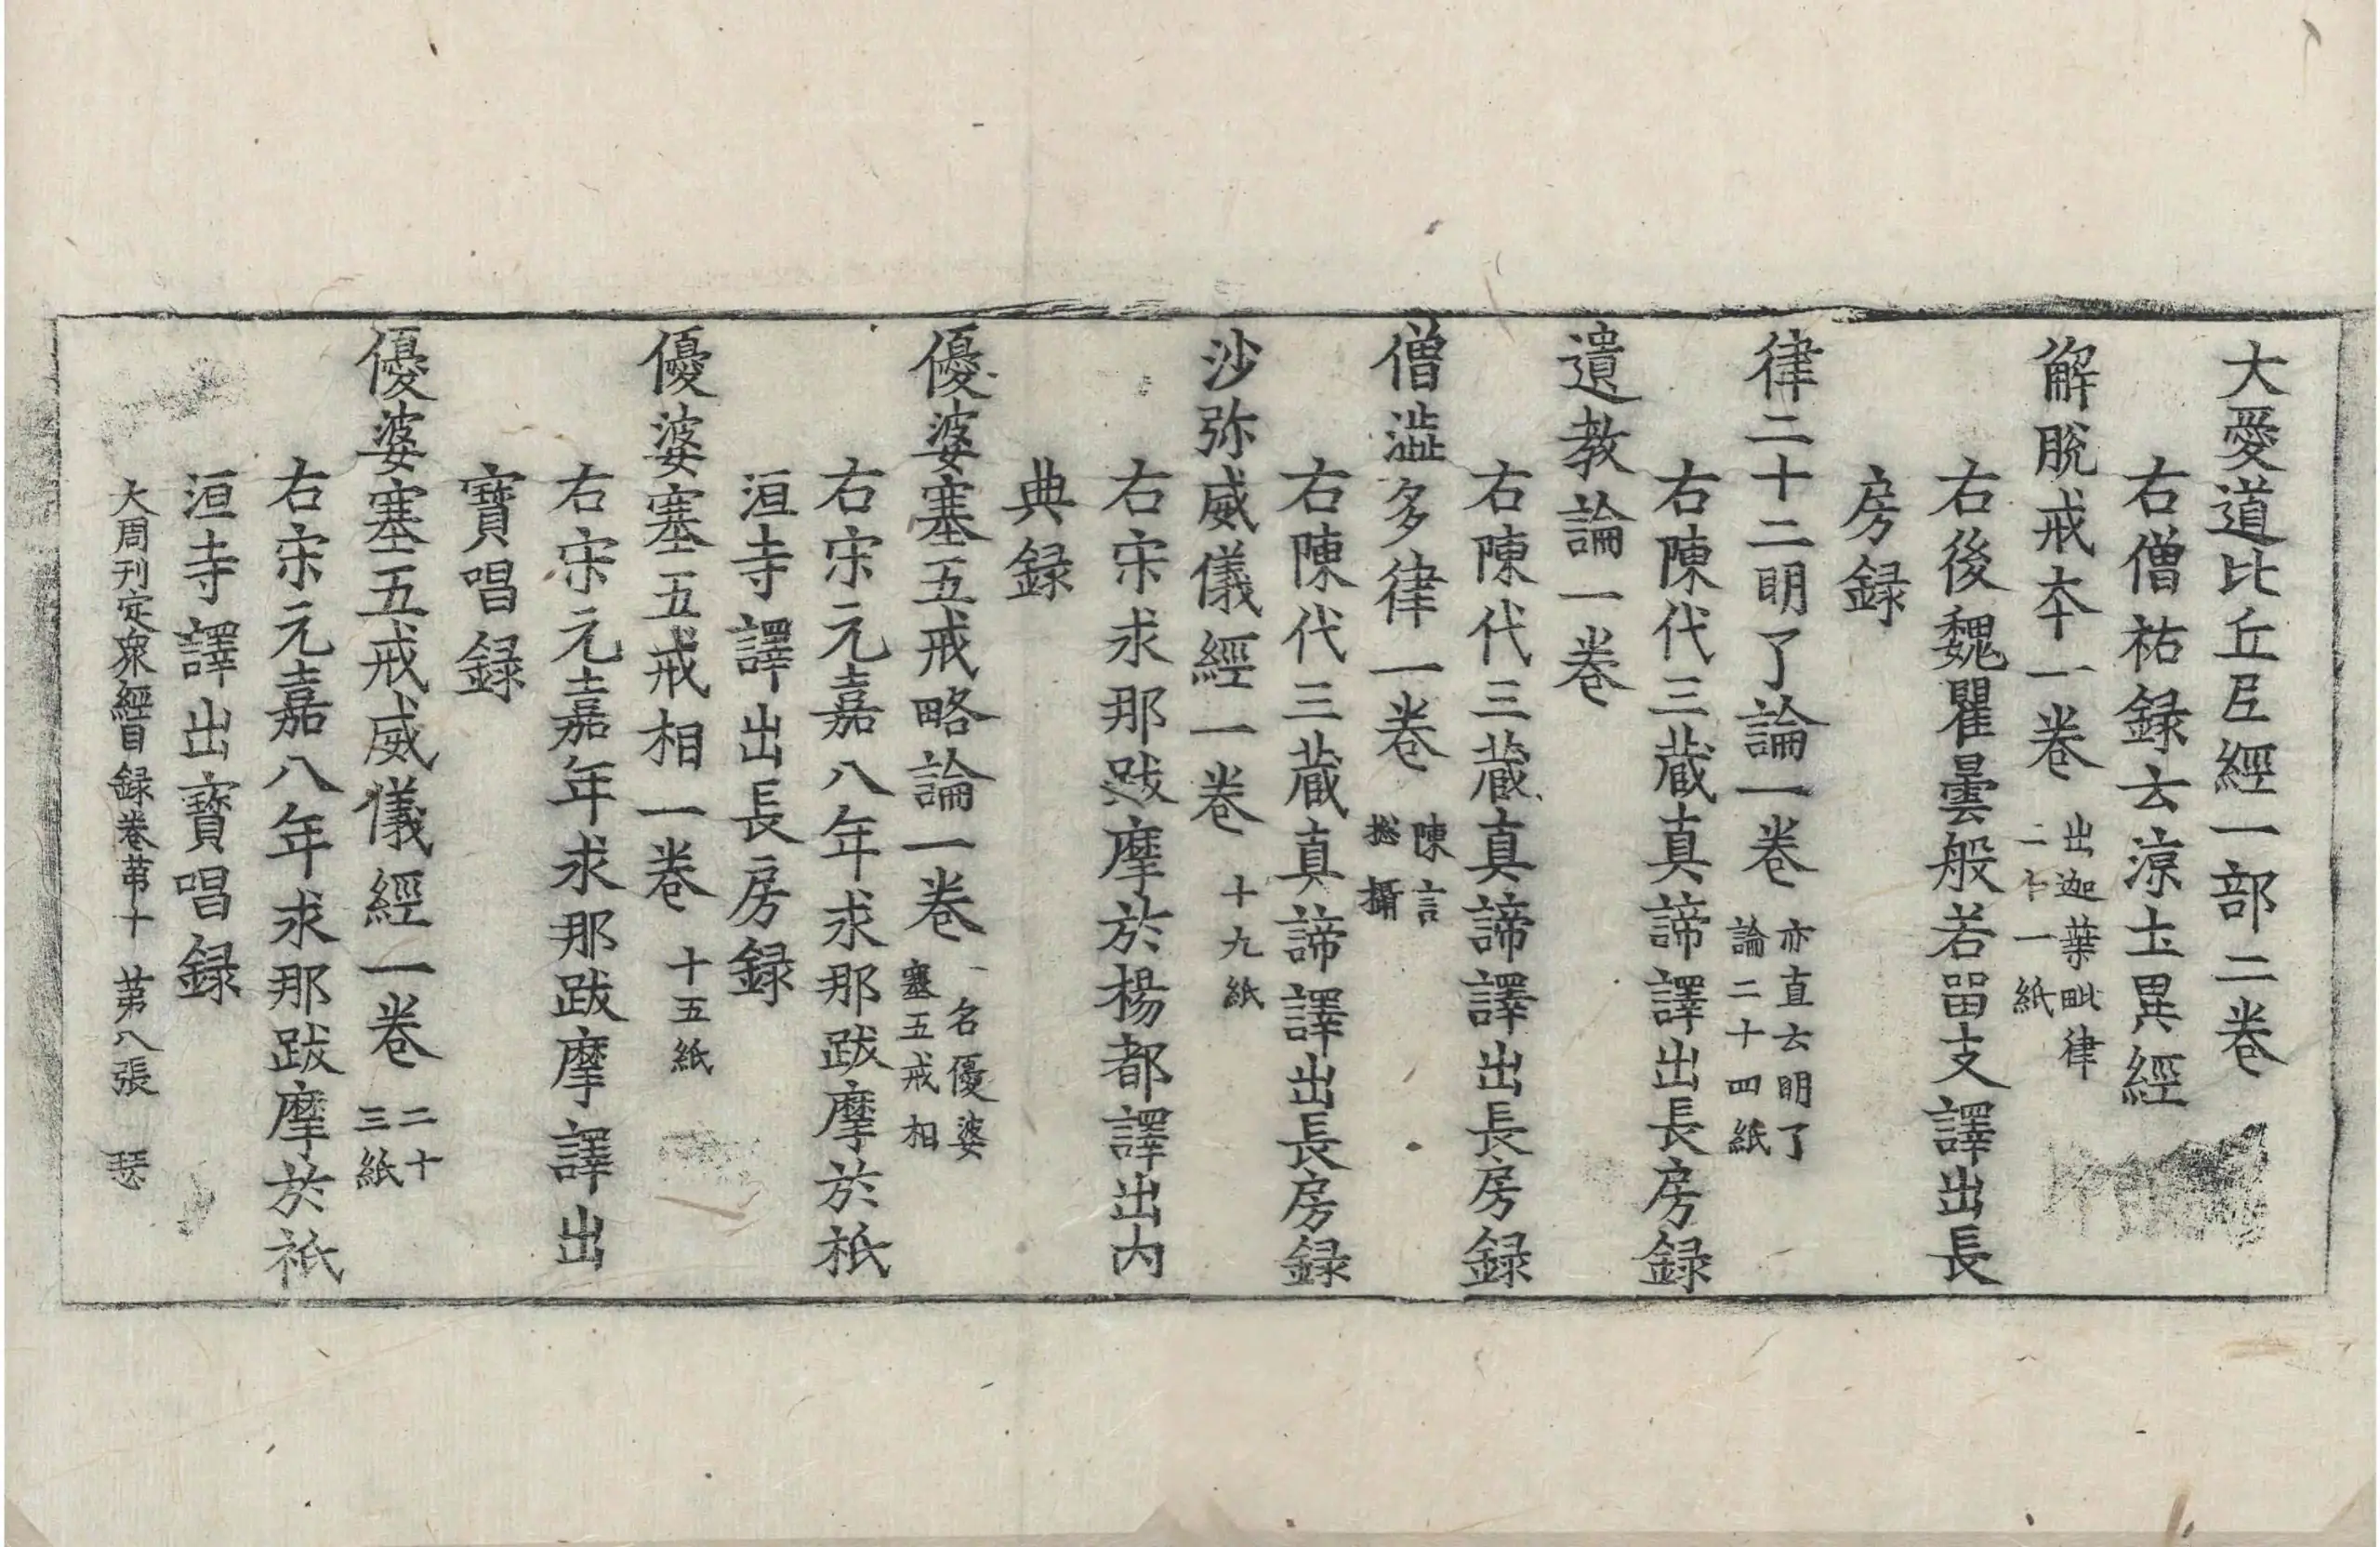 大愛道比丘尼經一部二卷
右僧祐録云涼土異經
解脫戒本一卷 出迦葉毗律 二十一紙
右後魏瞿曇般若留支譯出長
房録
律二十二明了論一卷 亦直云明了 論二十四紙
右陳代三藏真諦譯出長房録
遺教論一卷
右陳代三藏真諦譯出長房録
僧澁多律一卷 陳言 揔攝
右陳代三藏真諦譯出長房録
沙弥威儀經一卷 十九紙
右宋求那跋摩於楊都譯出内
典録
優婆塞五戒略論一卷 一名優婆 塞五戒相
右宋元嘉八年求那跋摩於秖
洹寺譯出長房録
優婆塞五戒相一卷 十五紙
右宋元嘉年求那跋摩譯出
寶唱録
優婆塞五戒威儀經一卷 二十 三紙
右宋元嘉八年求那跋摩於祇
洹寺譯出寶唱録
大周刊定衆經目録卷苐十 苐八張 瑟